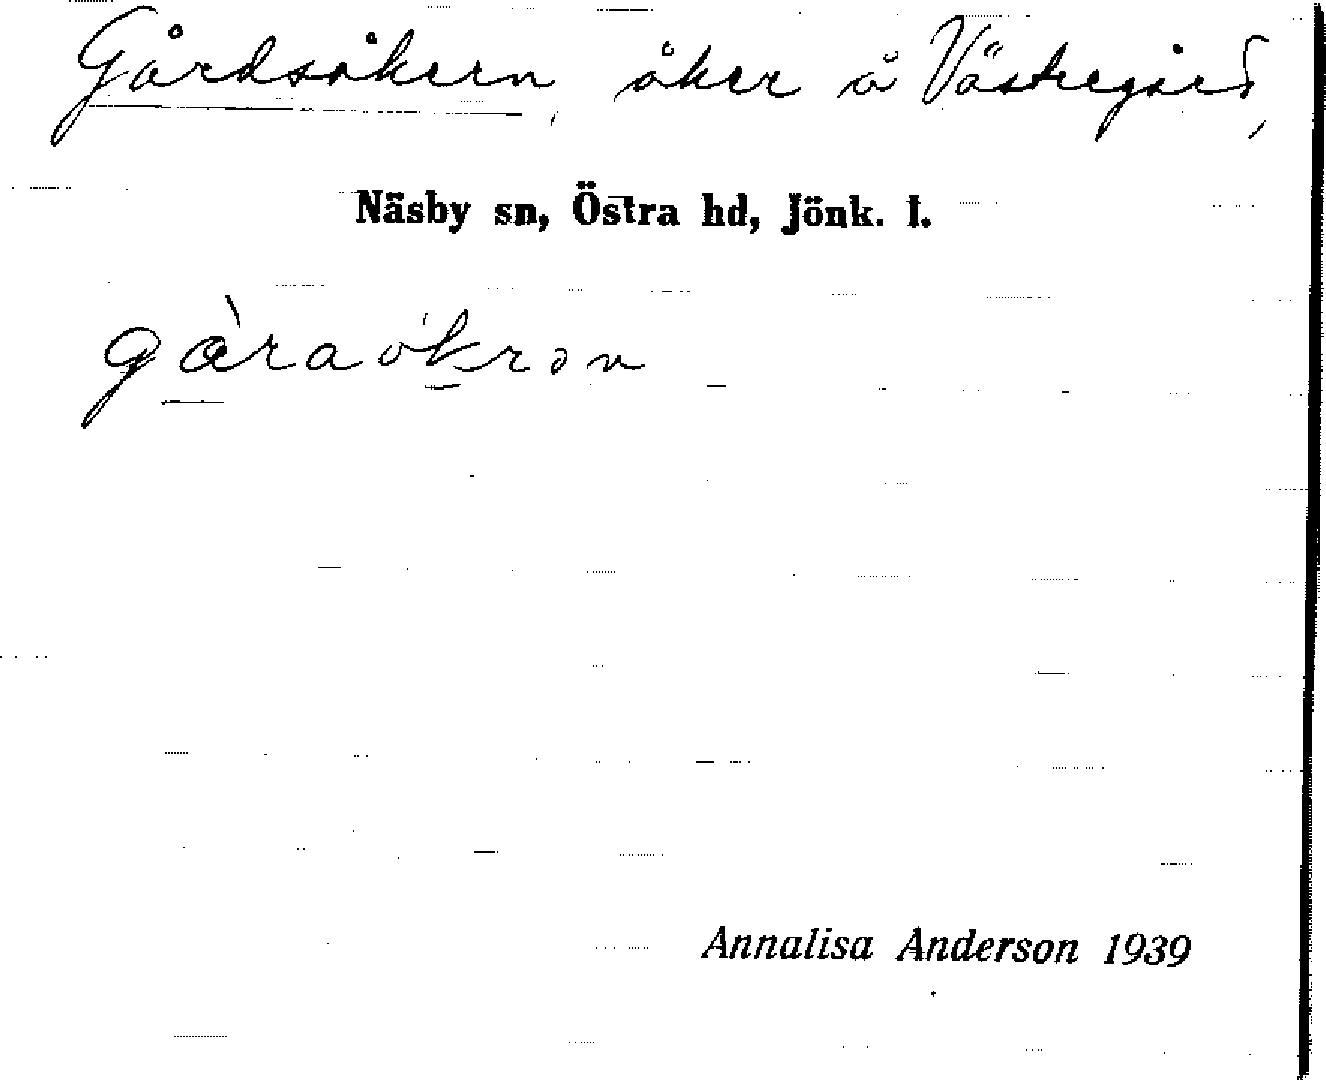 Gårdsåkern, åker å Västregård,
Näsby sn, Östra hd, Jönk. l.
Annalisa Anderson 1939